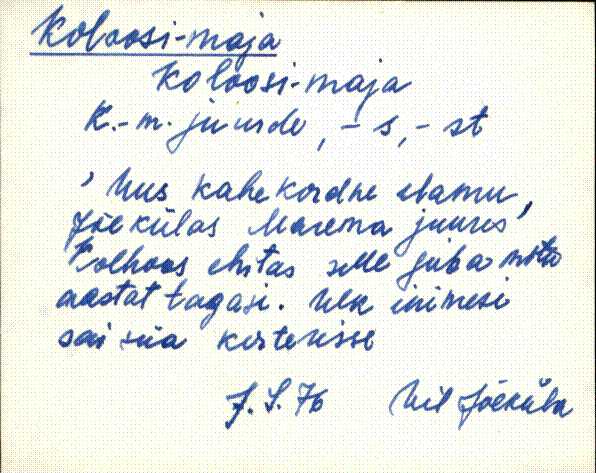 Koloosi-maja
Koloosi-maja
K.-m. juurde, -s, -st
' Uus kahekordne elamu,
Jõekülas Marema juures'
Kolhoos ehitas selle juba mitu
aastat tagasi. Ulk inimesi
sai siia korterisse
J. S. 76 Vil Jõeküla